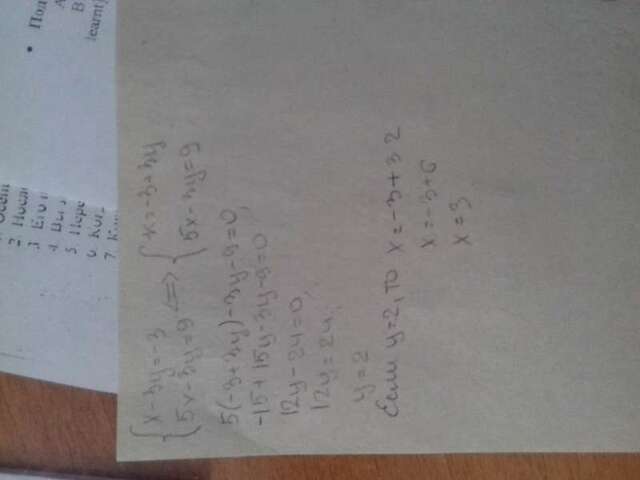 2. После
3. Его
4. Вы
5. Пере
6. Ког
7.
• Под
А
В
learnt)
{ x-3y=-3 <=> { x=-3+3y
5x-3y=9 5x-3y=9
5(-3+3y)-3y-9=0,
-15+15y-3y-9=0
12y-24=0,
12y=24,
y=2
Если y=2, то x=-3+3 2
x=-3+6
x=3